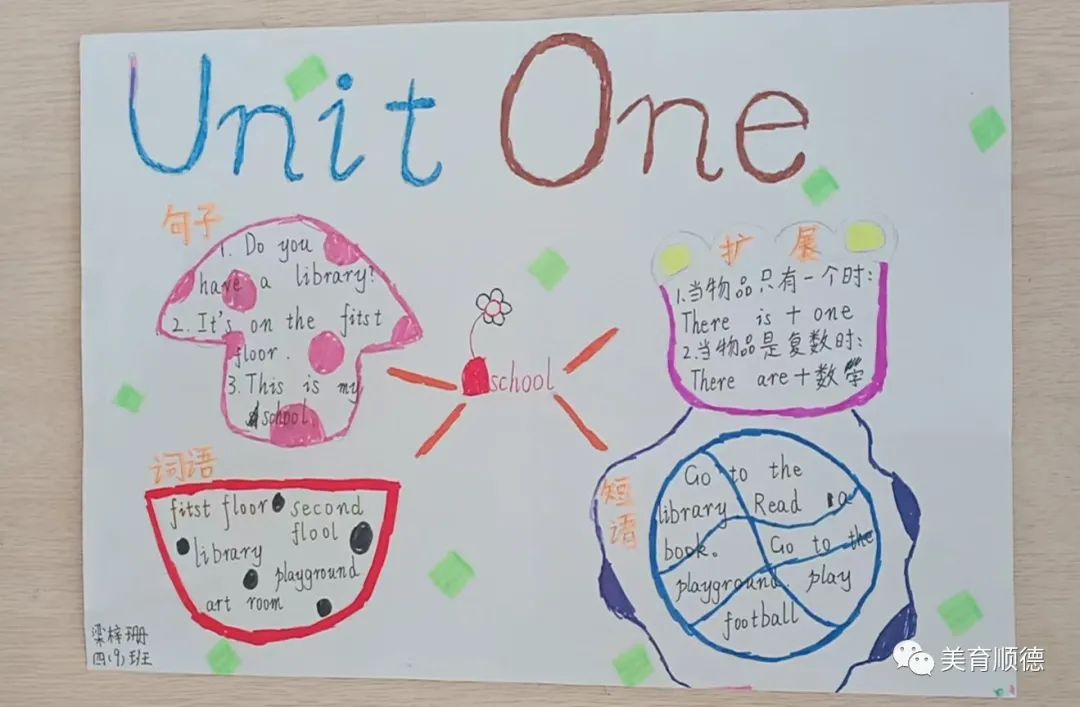 Unit One
句子
1. Do you
have a library?
2. It's on the fitst
floor.
3. This is my
school.
school
扩展
1.当物品只有一个时:
There is + one
2.当物品是复数时:
There are + 数
词语
fitst floor second
flool
library
playground
art room
短语
Go to the
library Read a
book。 Go to the
playground. play
football
梁梓珊
四(9)班
美育顺德